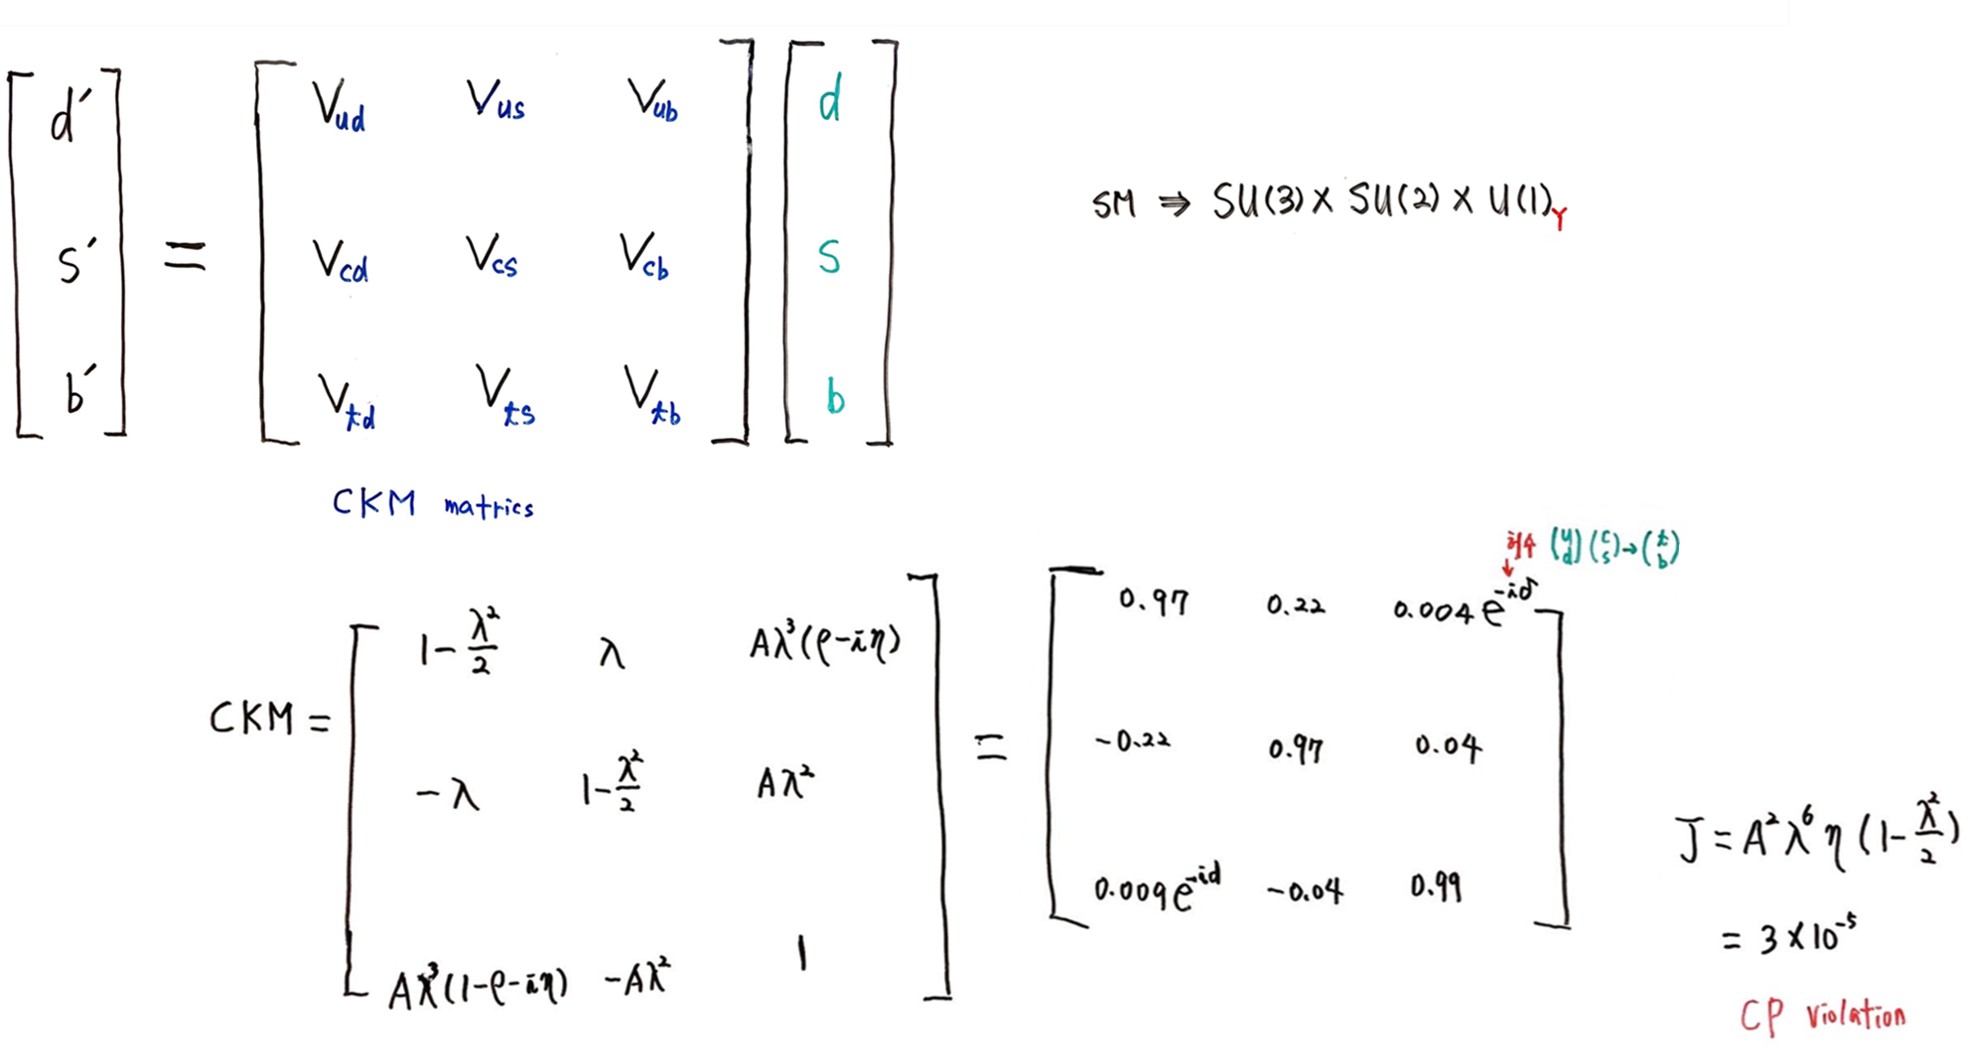 [d′ s′ b′] = [Vud Vus Vub
Vcd Vcs Vcb
Vtd Vts Vtb] [d s b]
SM ⇒ SU(3) × SU(2) × U(1)Y
CKM matrics
허수 (u d) (c s) → (t b)
CKM = [1-λ²/2 λ Aλ³(ρ-iη)
-λ 1-λ²/2 Aλ²
Aλ³(1-ρ-iη) -Aλ² 1]
= [0.97 0.22 0.004e^-iδ
-0.22 0.97 0.04
0.009e^-id -0.04 0.99]
J = A²λ⁶η(1-λ²/2)
= 3×10⁻⁵
CP violation